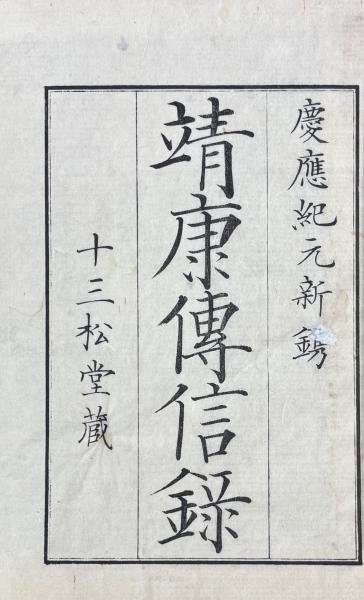 慶應紀元新鐫
靖康傳信錄
十三松堂蔵